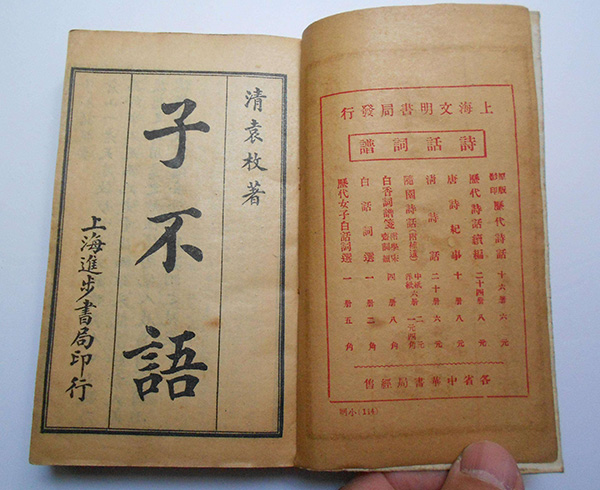 清袁枚著
子不語
上海進步書局印行
上海文明書局發行
詩話詞譜
原版影印 歷代詩話 十六册 六元
歷代詩話續編 二十四册 八元
唐詩紀事 十册 八元
清詩話 二十册 六元
隨園詩話(附補遺) 中紙六册 二元 洋紙 一元四角
白香詞譜箋 四册 八角
白話詞選 一册 二角
歷代女子白話詞選 一册 五角
各省中華書局經售
小明(114)